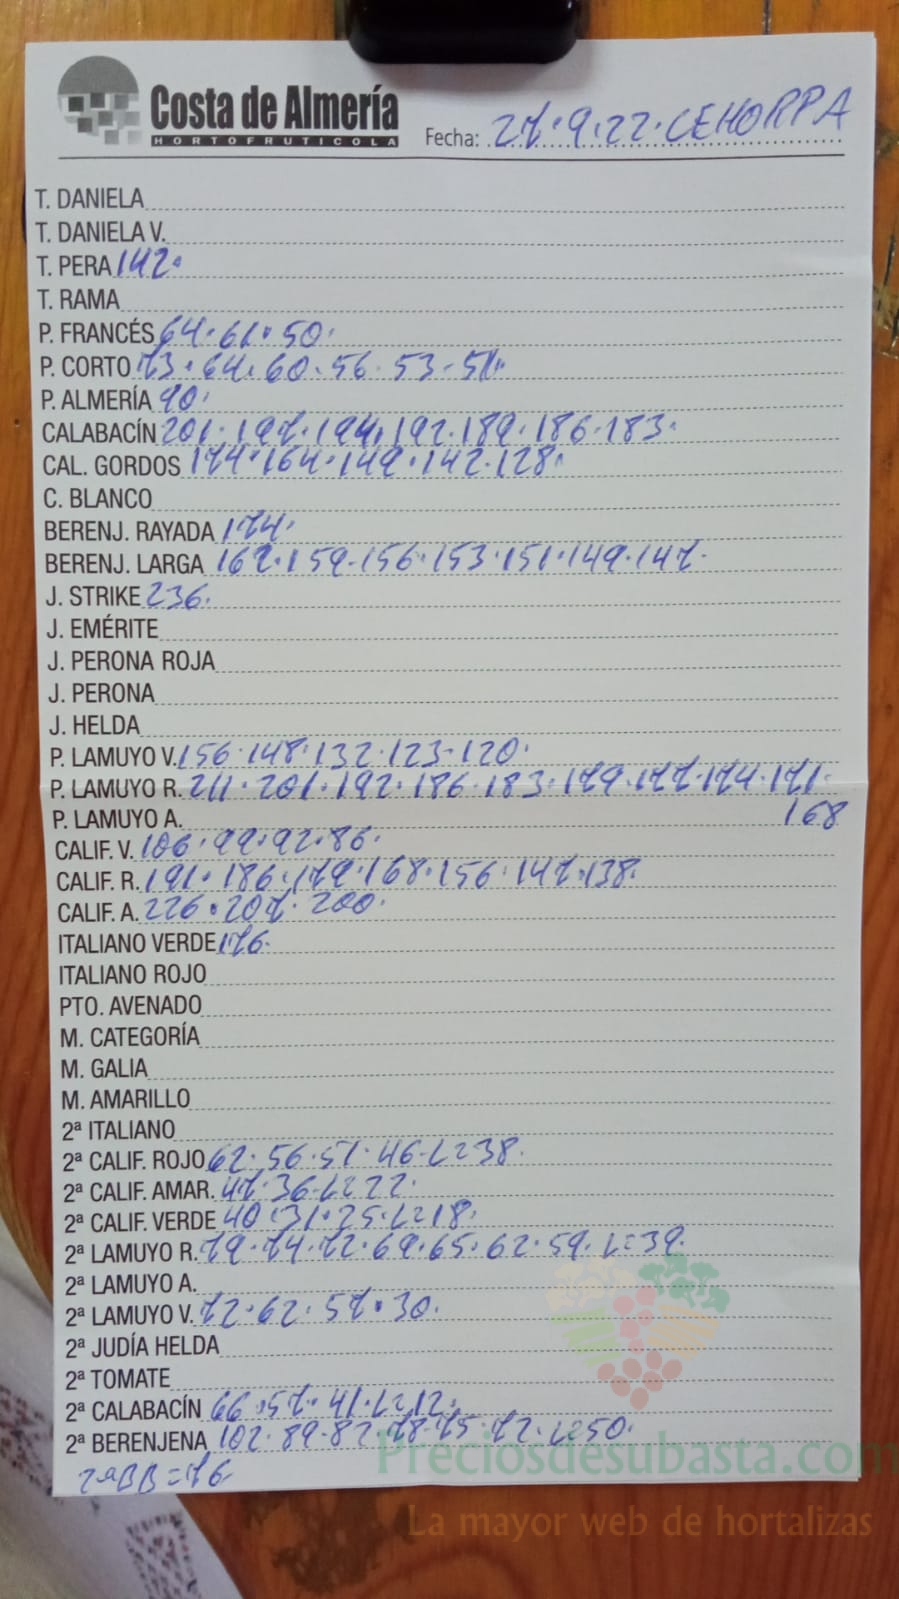 Costa de Almería
HORTOFRUTICOLA
Fecha: 27.9.22.CEHORPA
T. DANIELA
T. DANIELA V.
T. PERA 142.
T. RAMA
P. FRANCÉS 64.61.50.
P. CORTO 73.64.60.56.53-51.
P. ALMERÍA 90.
CALABACÍN 201.197.194.192.189.186.183.
CAL. GORDOS 174.164.149.142.128.
C. BLANCO
BERENJ. RAYADA 174.
BERENJ. LARGA 162.159.156.153.151.149.147.
J. STRIKE 236.
J. EMÉRITE
J. PERONA ROJA
J. PERONA
J. HELDA
P. LAMUYO V. 156.148.132.123-120.
P. LAMUYO R. 211.201.192.186.183.179.177.174.171.
P. LAMUYO A. 168
CALIF. V. 106.99.92.86.
CALIF. R. 191.186.179.168.156.147.138.
CALIF. A. 226.207.200.
ITALIANO VERDE 176.
ITALIANO ROJO
PTO. AVENADO
M. CATEGORÍA
M. GALIA
M. AMARILLO
2ª ITALIANO
2ª CALIF. ROJO 62.56.51.46-L=38.
2ª CALIF. AMAR. 47.36-L=22.
2ª CALIF. VERDE 40.31.25.L=18.
2ª LAMUYO R. 79.74.72.69.65.62.59.L=39.
2ª LAMUYO A.
2ª LAMUYO V. 72.62.57.30.
2ª JUDÍA HELDA
2ª TOMATE
2ª CALABACÍN 66.57.41.L=12.
2ª BERENJENA 102.89.82.78.75.72.L=50.
2ªBB=76.
Preciosdesubasta.com
La mayor web de hortalizas